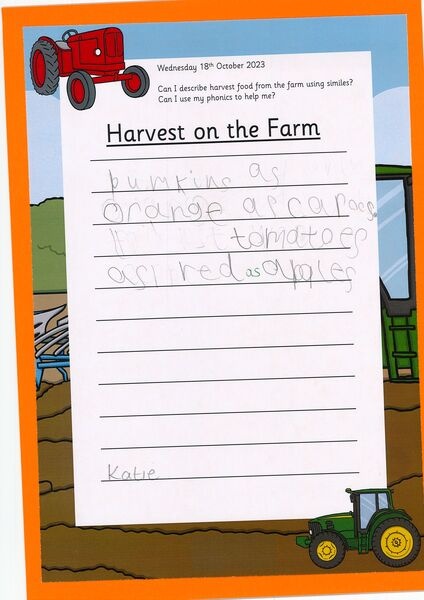 Wednesday 18th October 2023
Can I describe harvest food from the farm using similes?
Can I use my phonics to help me?
Harvest on the Farm
pumkins as
orange as
tomatoes
as red as apples
Katie